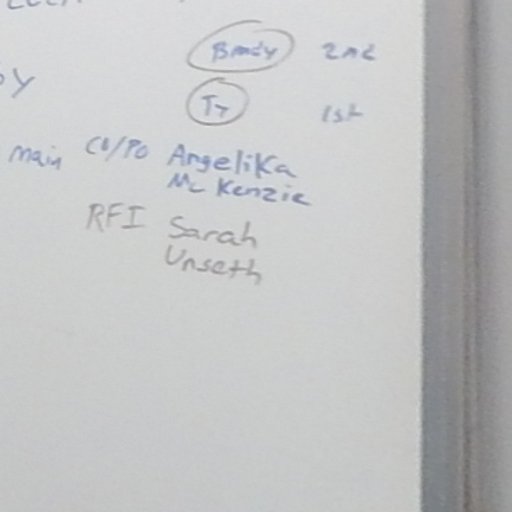 Brady 2nd
Ty 1st
main CO/PO Angelika
McKenzie
RFI Sarah
Unseth